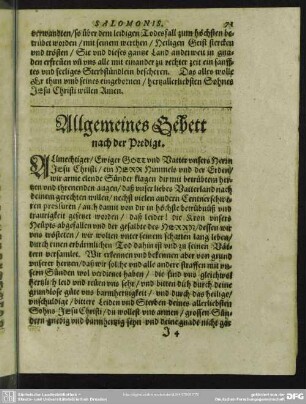 SALOMONIS. 71
verwandten/ so über dem leidigen Todesfall zum höchsten be-
trübet worden/ mit seinem werthen/ Heiligen Geist stercken
und trösten/ Sie und dieses gantze Land anderweit in gna-
den erfreuen und uns alle mit einander zu rechter zeit ein sanff-
tes und seeliges Sterbstündlein bescheren. Das alles wolle
Er thun umb seines eingebornen/ hertzallerliebsten Sohnes
Jesu Christi willen Amen.
Allgemeines Gebett
nach der Predigt.
Allmechtiger/ Ewiger Gott und Vatter unsers Herrn
Jesu Christi/ ein HERR Himmels und der Erden/
wir arme elende Sünder klagen dir mit betrübtem hertz-
en und threnenden augen/ daß unser liebes Vatterland nach
deinem gerechten willen/ nechst vielen andern
pressuren/ auch damit von dir in höchste betrübnüß und
traurigkeit gesetzet worden/ daß leider! die Kron unsers
Häupts abgefallen und der gesalbte des HERRN/ dessen wir
uns trösteten/ wir wolten unter seinem schatten lang leben/
durch einen erbärmlichen Tod dahin ist und zu seinen Vä-
tern versamlet. Wir erkennen und bekennen aber von grund
unserer hertzen/ daß wir solche und alle andere straffen mit un-
sern Sünden wol verdienet haben/ die sind uns gleichwol
hertzlich leid und reüen uns sehr/ und bitten dich durch deine
grundlose güte und barmhertzigkeit/ und durch das heilige/
unschuldige/ bittere Leiden und Sterben deines allerliebsten
Sohns Jesu Christi/ du wollest uns armen/ grossen Sün-
dern gnedig und barmhertzig seyn und deine gnade nicht gar
J 4